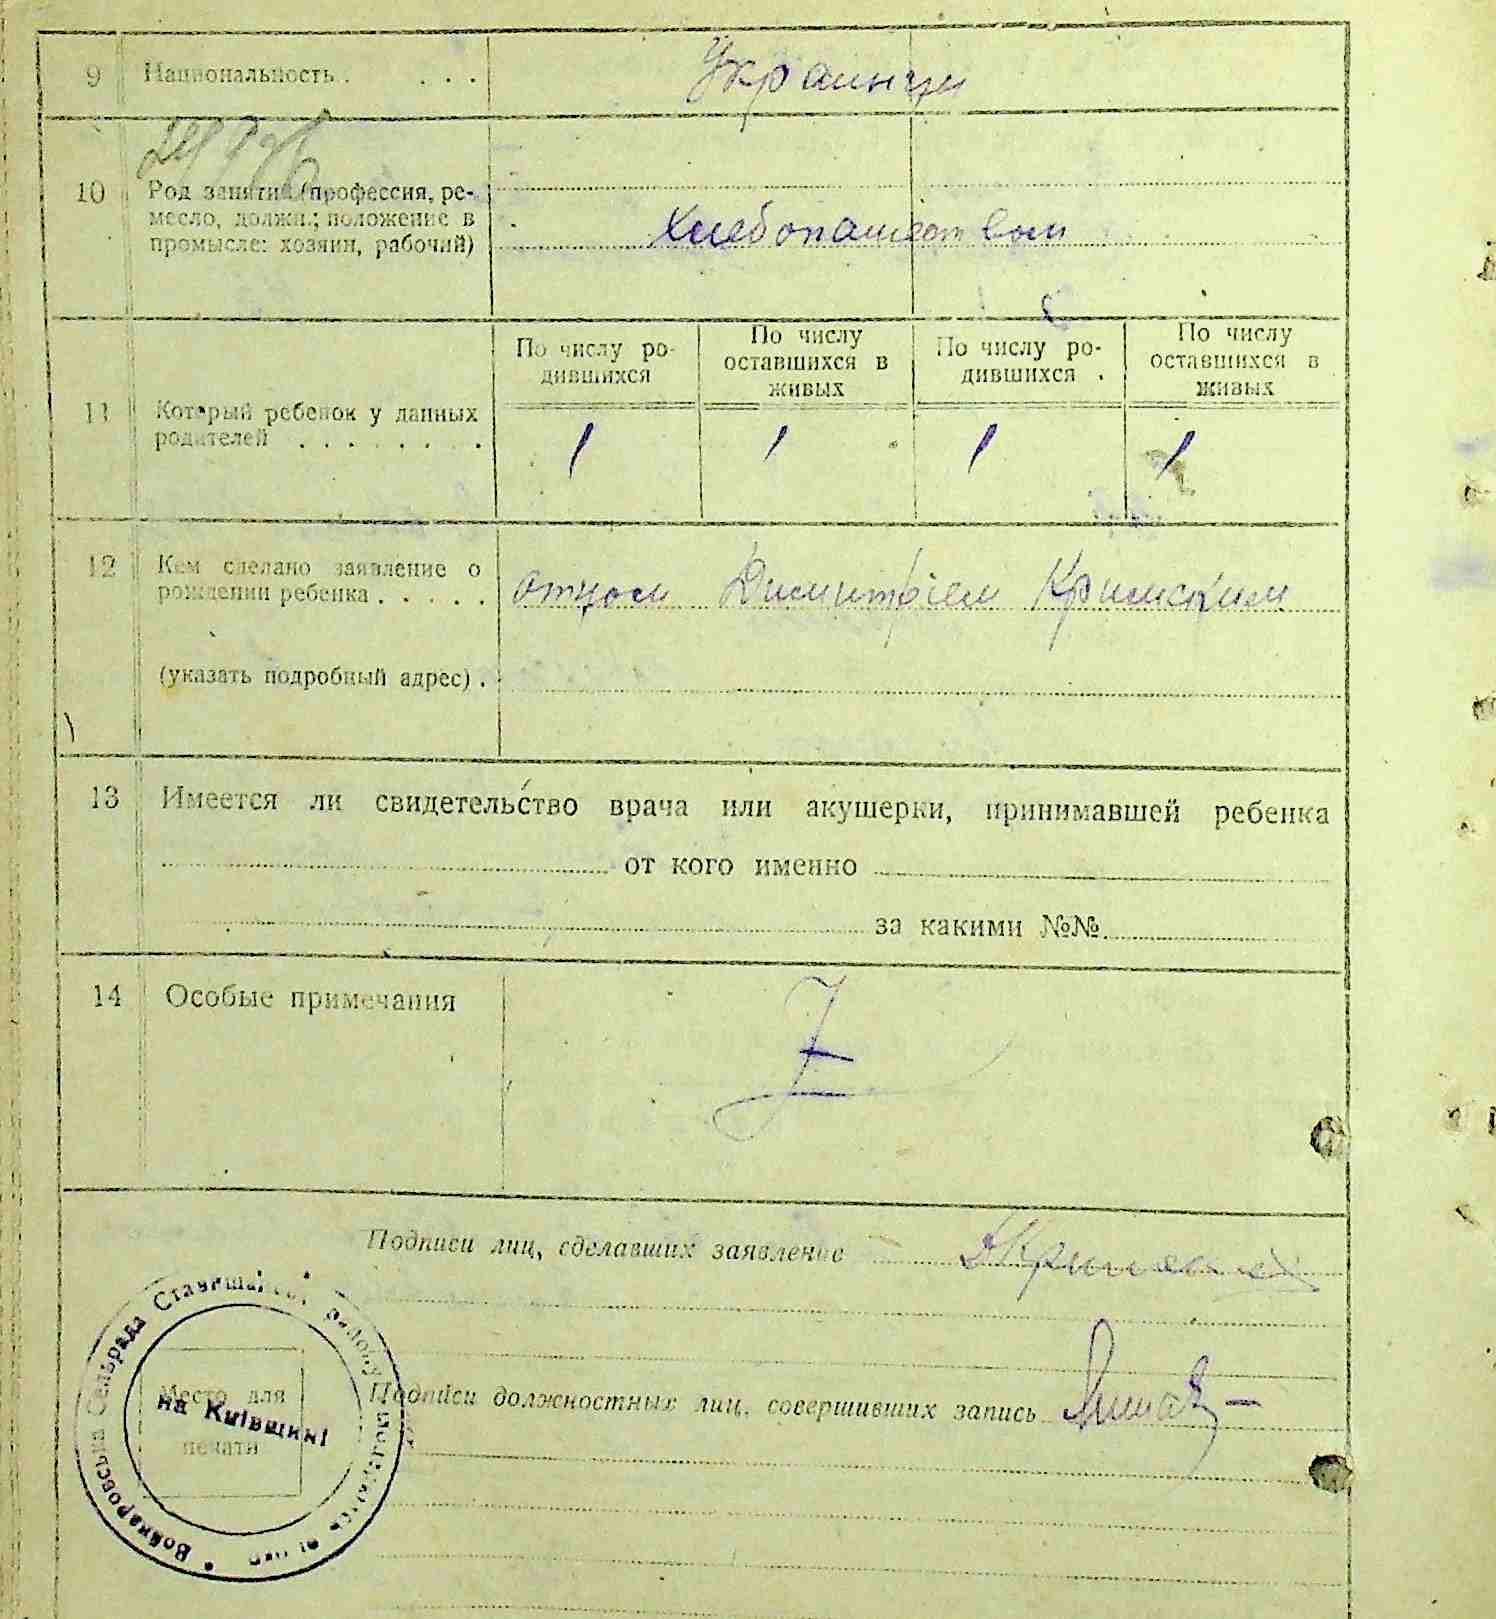 9 Национальность . . . . Украинцы
10 Род занятий (профессия, ре-
месло, должн.; положение в
промысле: хозяин, рабочий)
Хлебопашеством
По числу ро-
дившихся
По числу
оставшихся в
живых
По числу ро-
дившихся .
По числу
оставшихся в
живых
11 Который ребенок у данных
родителей . . . . . . . .
1 1 1 1
12 Кем сделано заявление о
рождении ребенка . . . . . отцом Димитрием Кримским
(указать подробный адрес) .
13 Имеется ли свидетельство врача или акушерки, принимавшей ребенка
от кого именно
за какими №№
14 Особые примечания
Подписи лиц, сделавших заявление
Подписи должностных лиц, совершивших запись
Место для
печати
Войнаровська Сельрада Ставищанськ району
на Київщині